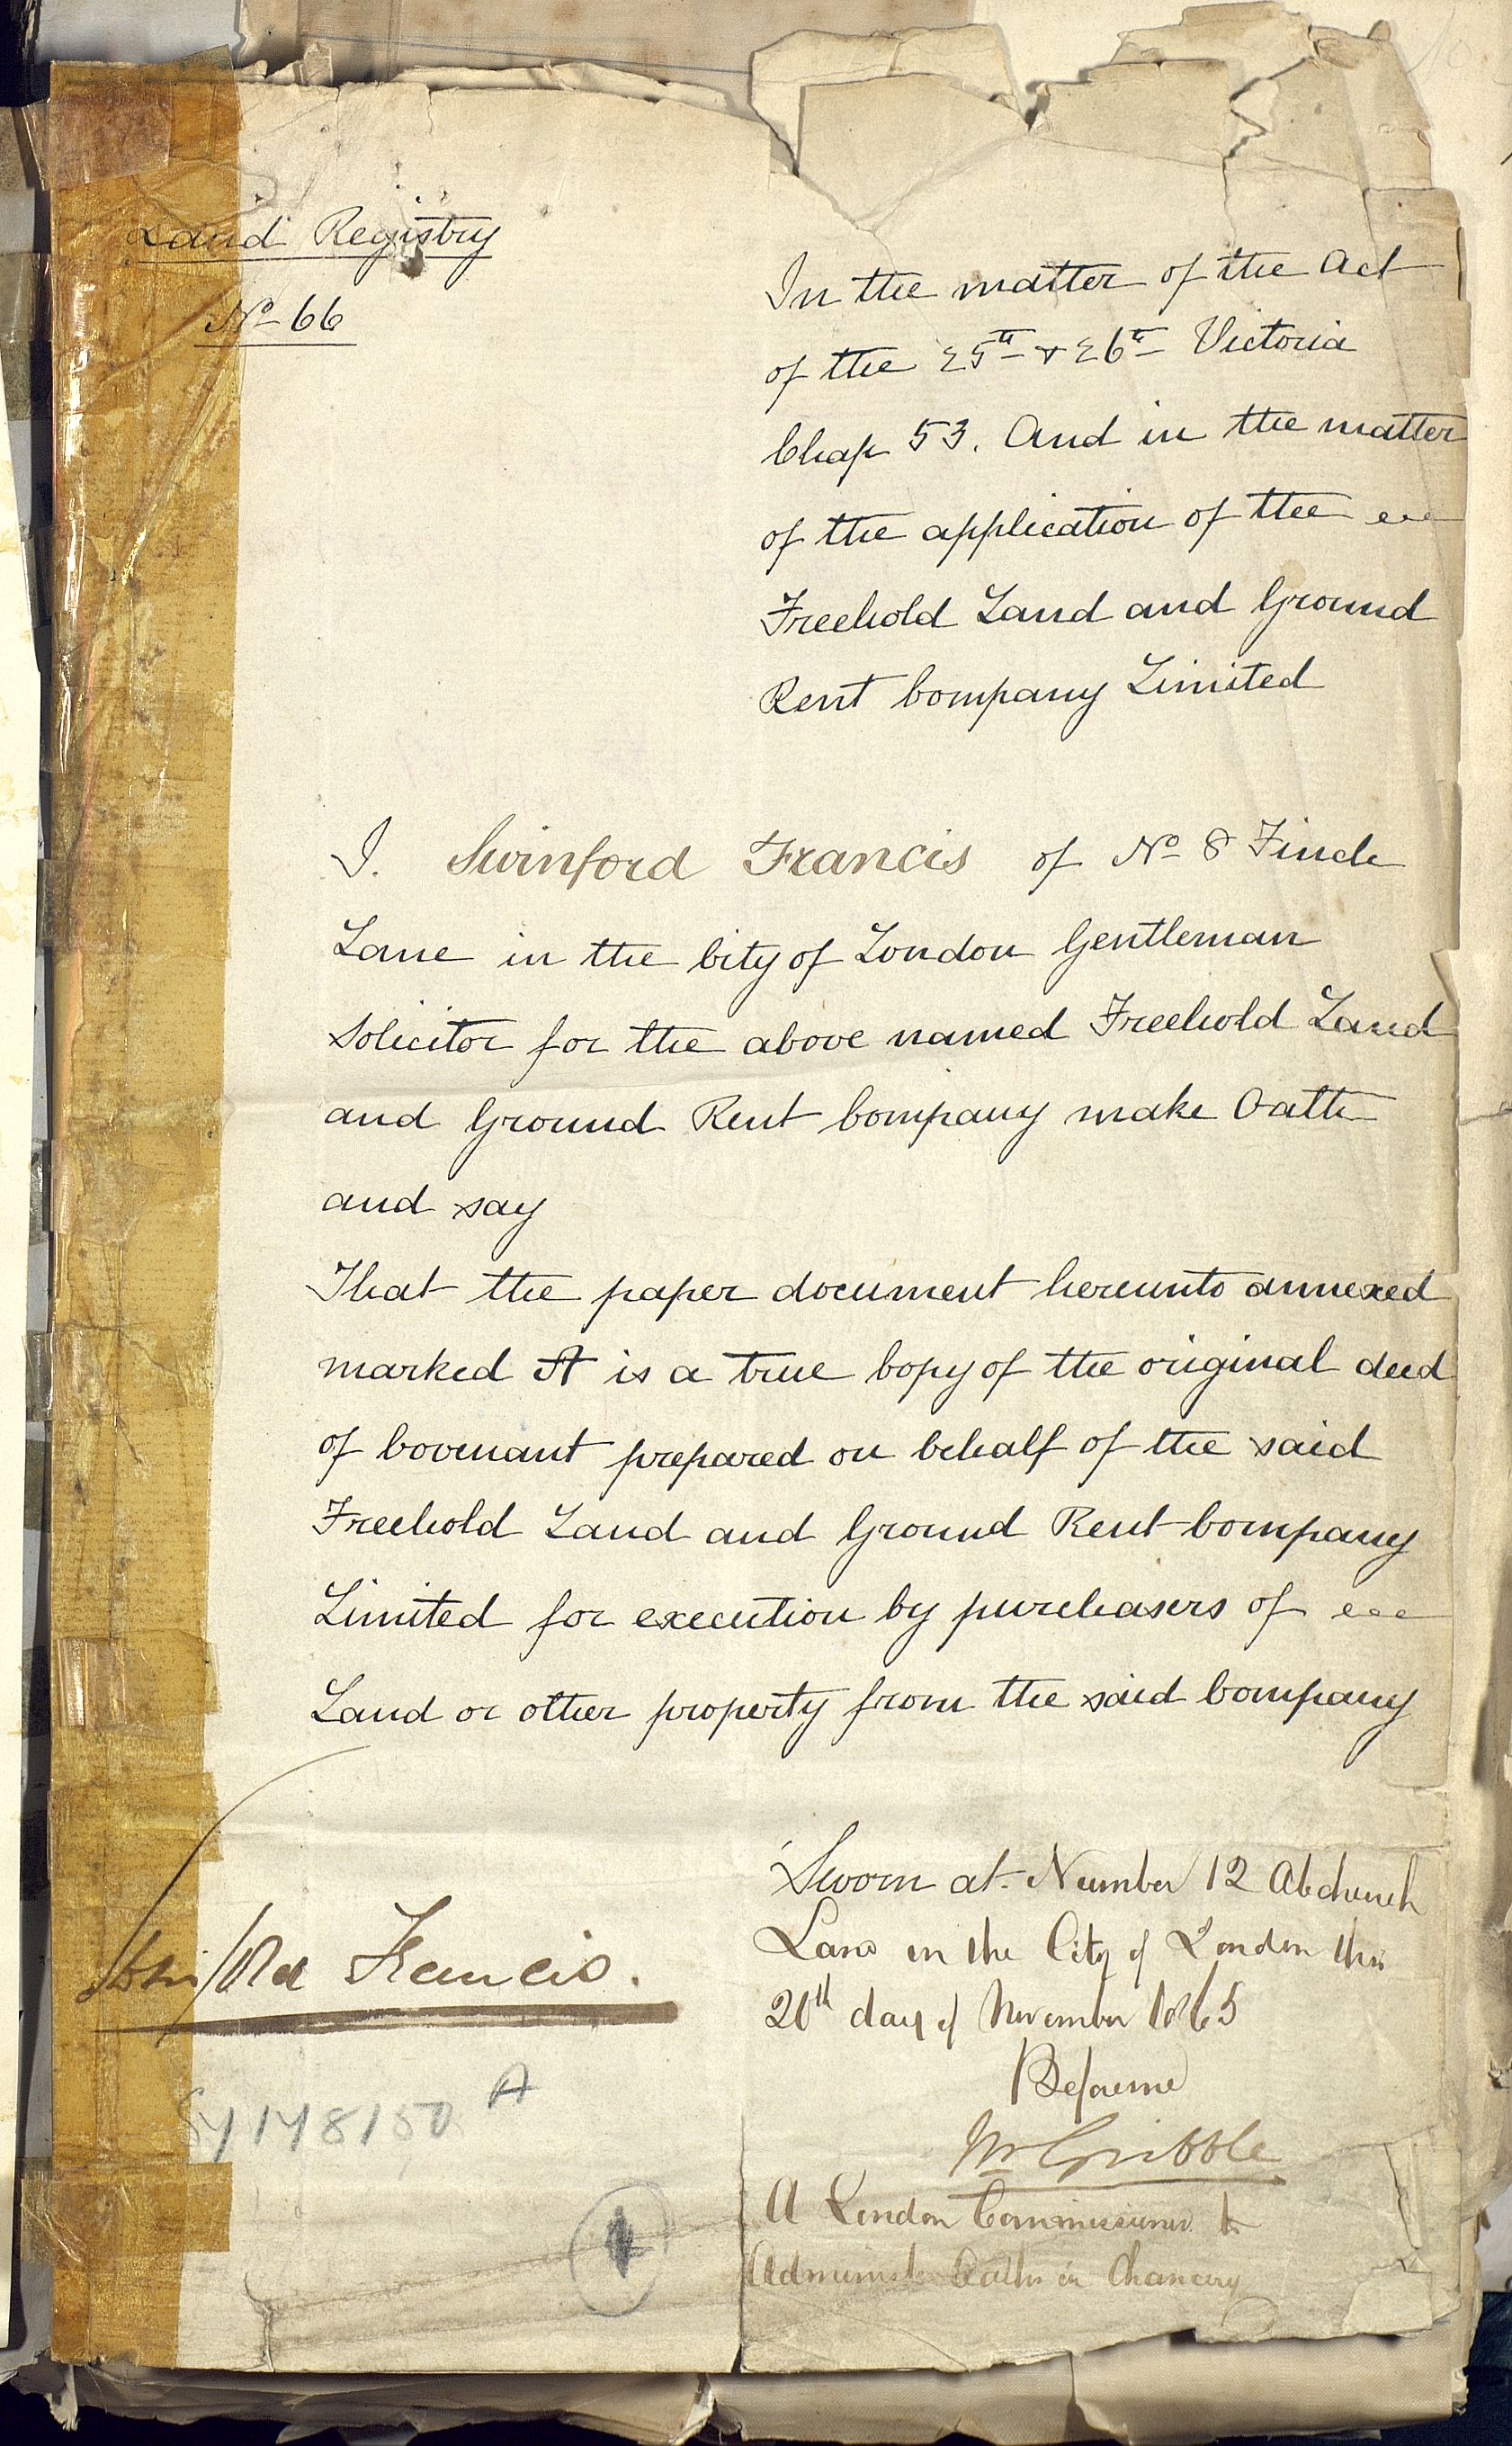 Land Registry
No 66
In the matter of the Act
of the 25th & 26th Victoria
Chap 53. And in the matter
of the application of the
Freehold Land and Ground
Rent Company Limited
I. Swinford Francis of No 8 Finch
Lane in the City of London Gentleman
Solicitor for the above named Freehold Land
and Ground Rent Company make Oath
and say
That the paper document hereunto annexed
marked A is a true Copy of the original deed
of Covenant prepared on behalf of the said
Freehold Land and Ground Rent Company
Limited for execution by purchasers of
Land or other property from the said Company
Sworn at Number 12 Abchurch
Lane in the City of London this
20th day of November 1865
Before me
Wm Gribble
A London Commissioner to
Administer Oaths in Chancery
Swinford Francis.
SY148150 A
1